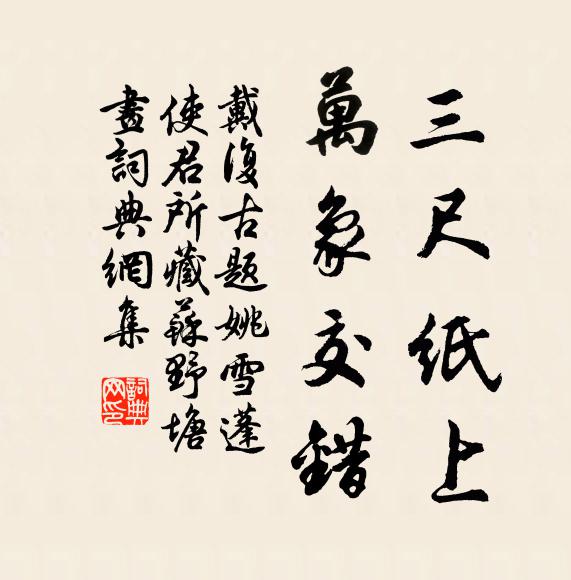 三尺紙上
萬象交錯
戴復古題姚雪蓬
使君所藏蘇野塘
畫詞典網集
詞典
网印